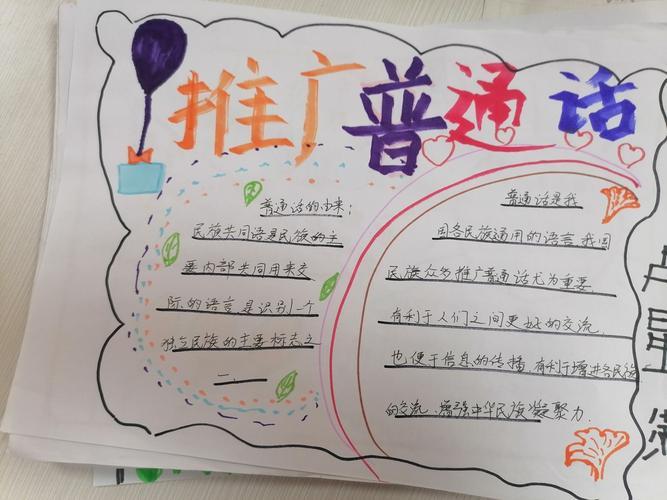 推广普通话
普通话的由来:
民族共同语是民族的主
要内部共同用来交
际的语言是识别一个
独立民族的主要标志之
一.
普通话是我
国各民族通用的语言,我国
民族众多推广普通话尤为重要
有利于人们之间更好的交流.
也便于信息的传播.有利于增进各民族
的交流.增强中华民族凝聚力.